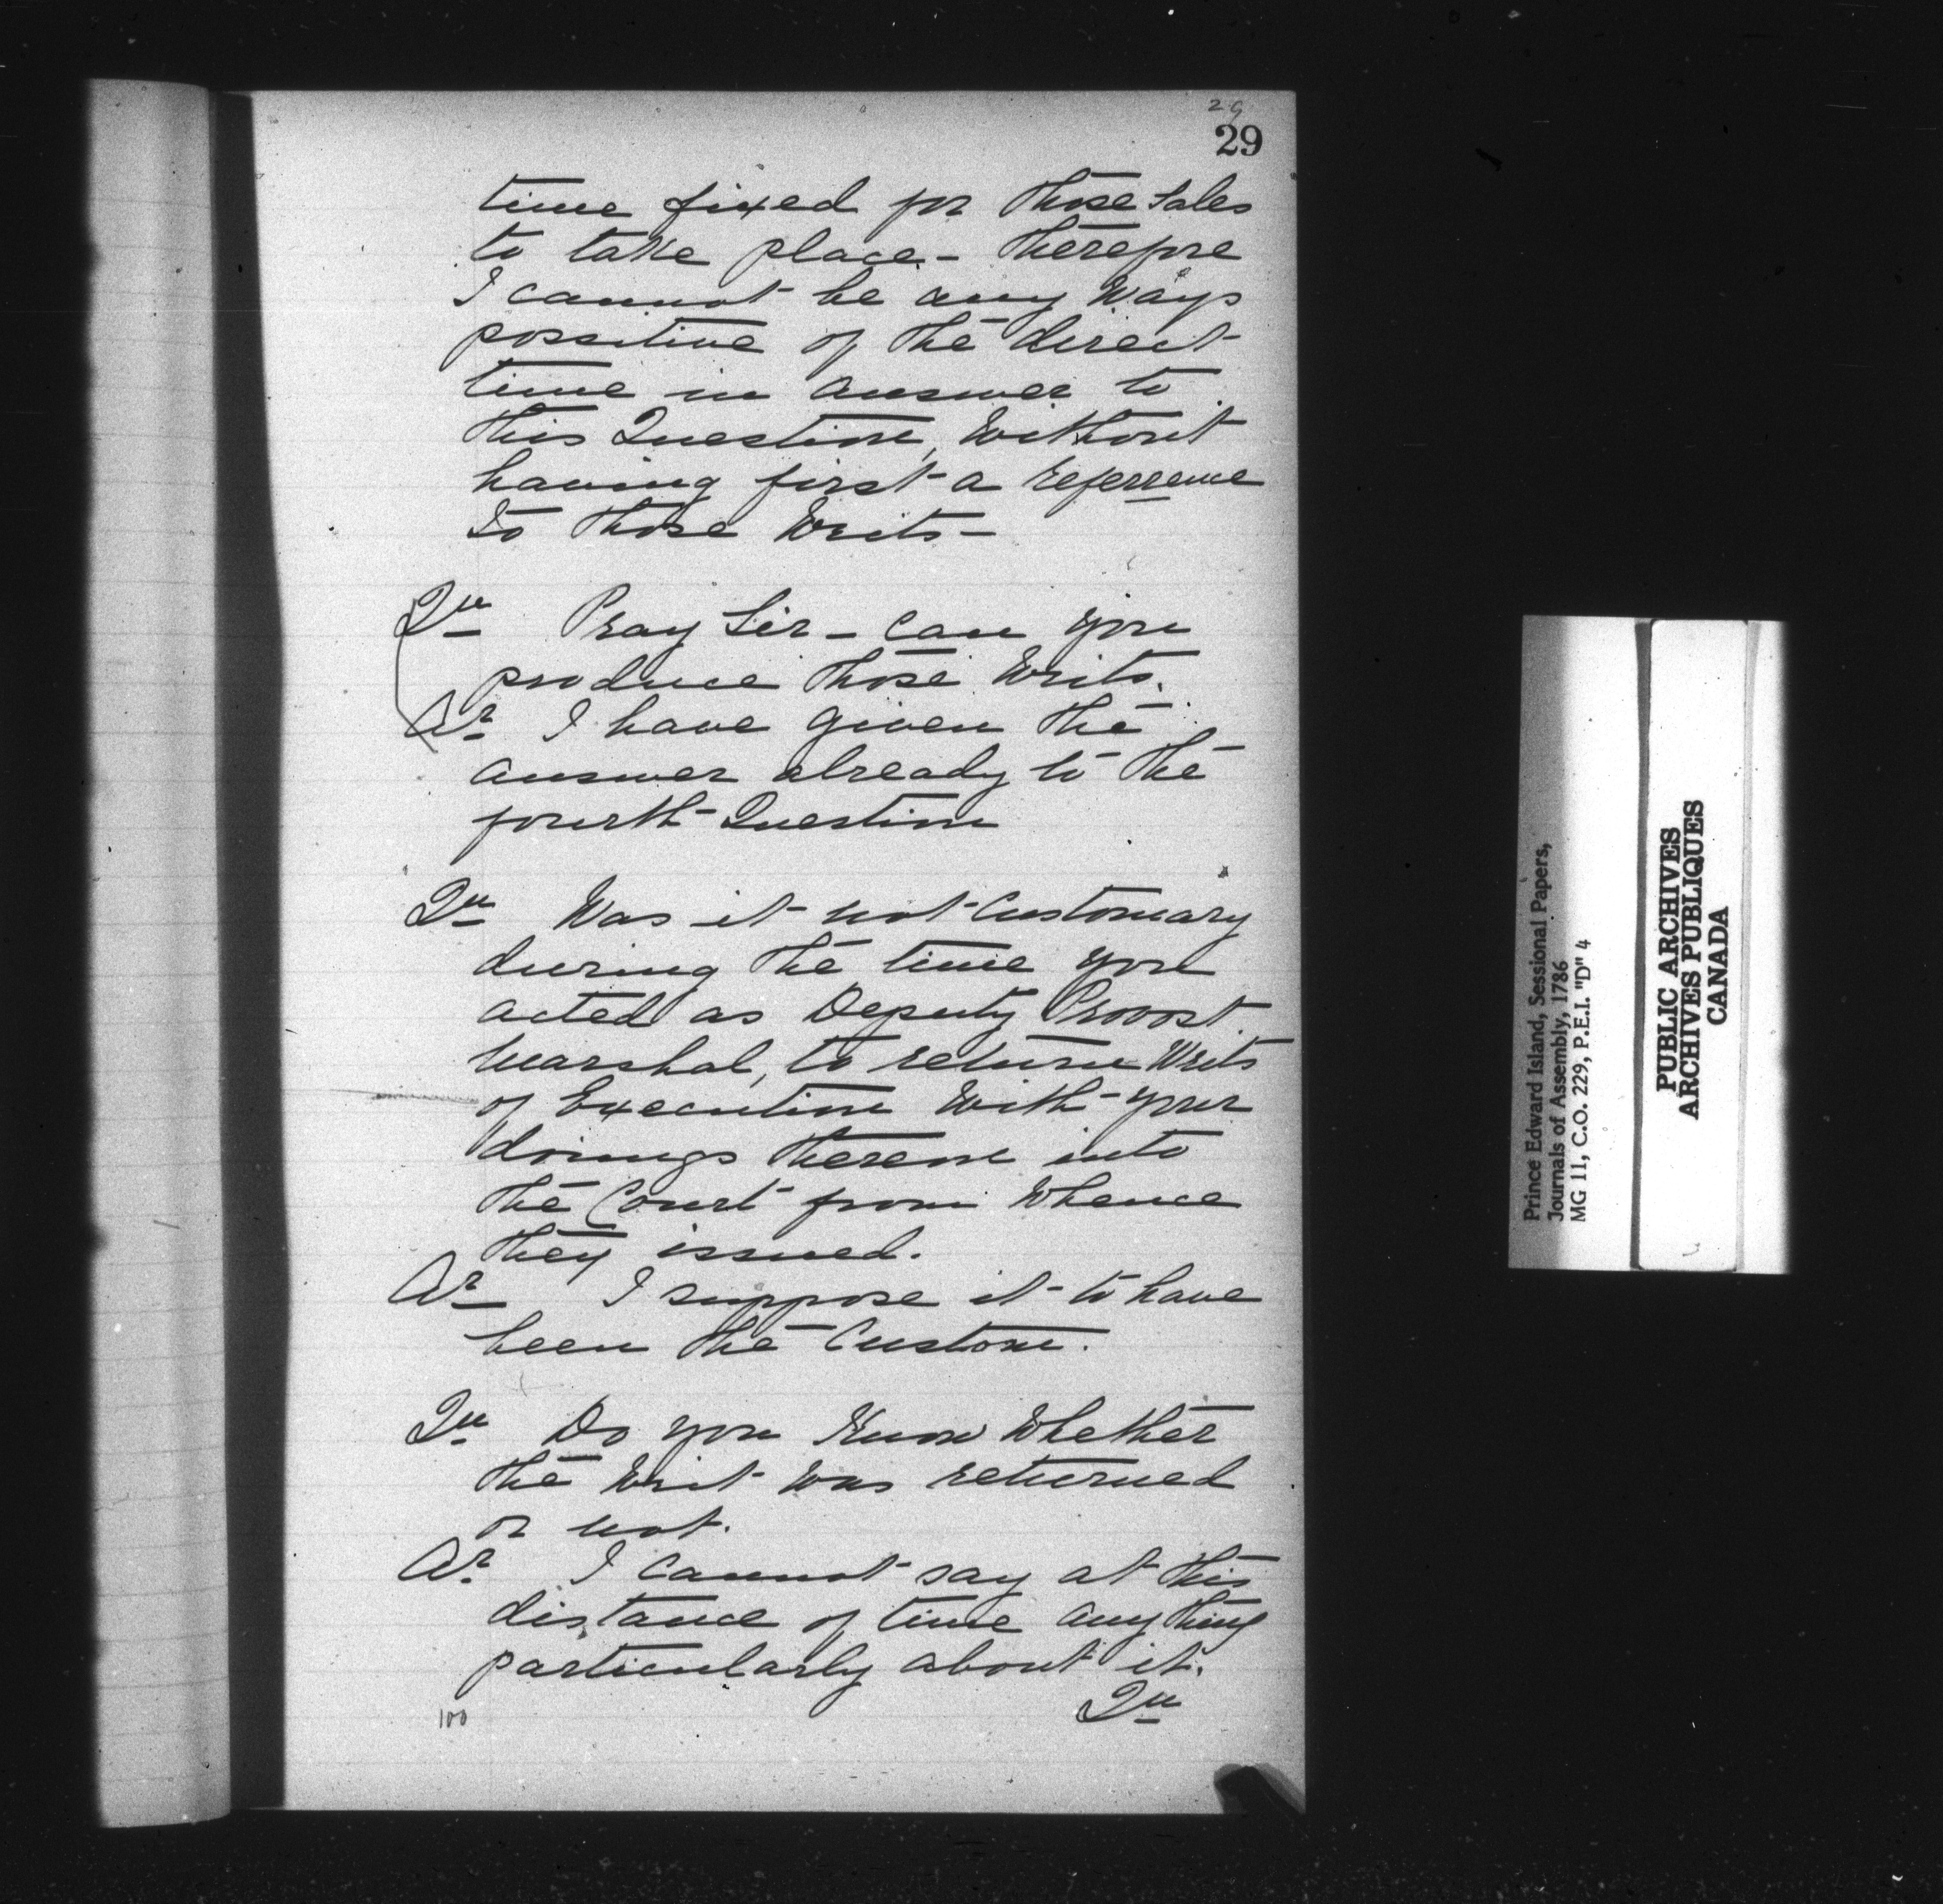 29
29
time fixed for those Sales
to take place - therefore
I cannot be any Ways
possitive of the direct
time in answer to
this Question, Without
having first a referrence
to those Writs -
Qu Pray Sir - Can you
produce those Writs.
Ar I have given the
answer already to the
fourth Question
Qu Was it not Customary
during the time you
acted as Deputy Provost
Marshal, to return Writs
of Execution With your
doings thereon into
the Court from Whence
they issued.
Ar I suppose it to have
been the Custom.
Qu Do you Know Whether
the Writ Was returned
or not.
Ar I Cannot say at this
distance of time any thing
particularly about it.
Qu
100
Prince Edward Island, Sessional Papers,
Journals of Assembly, 1786
MG 11, C.O. 229, P.E.I. "D" 4
PUBLIC ARCHIVES
ARCHIVES PUBLIQUES
CANADA